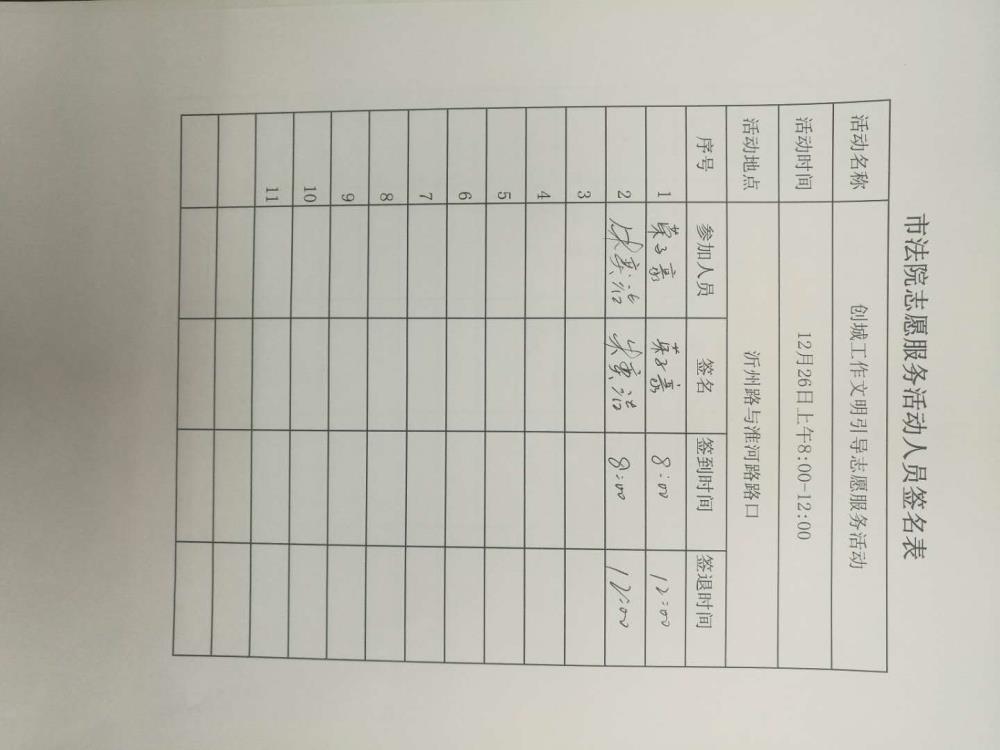 市法院志愿服务活动人员签名表
活动名称 创城工作文明引导志愿服务活动
活动时间 12月26日上午8:00-12:00
活动地点 沂州路与淮河路路口
序号 参加人员 签名 签到时间 签退时间
1 8:00 12:00
2 8:00 12:00
3
4
5
6
7
8
9
10
11